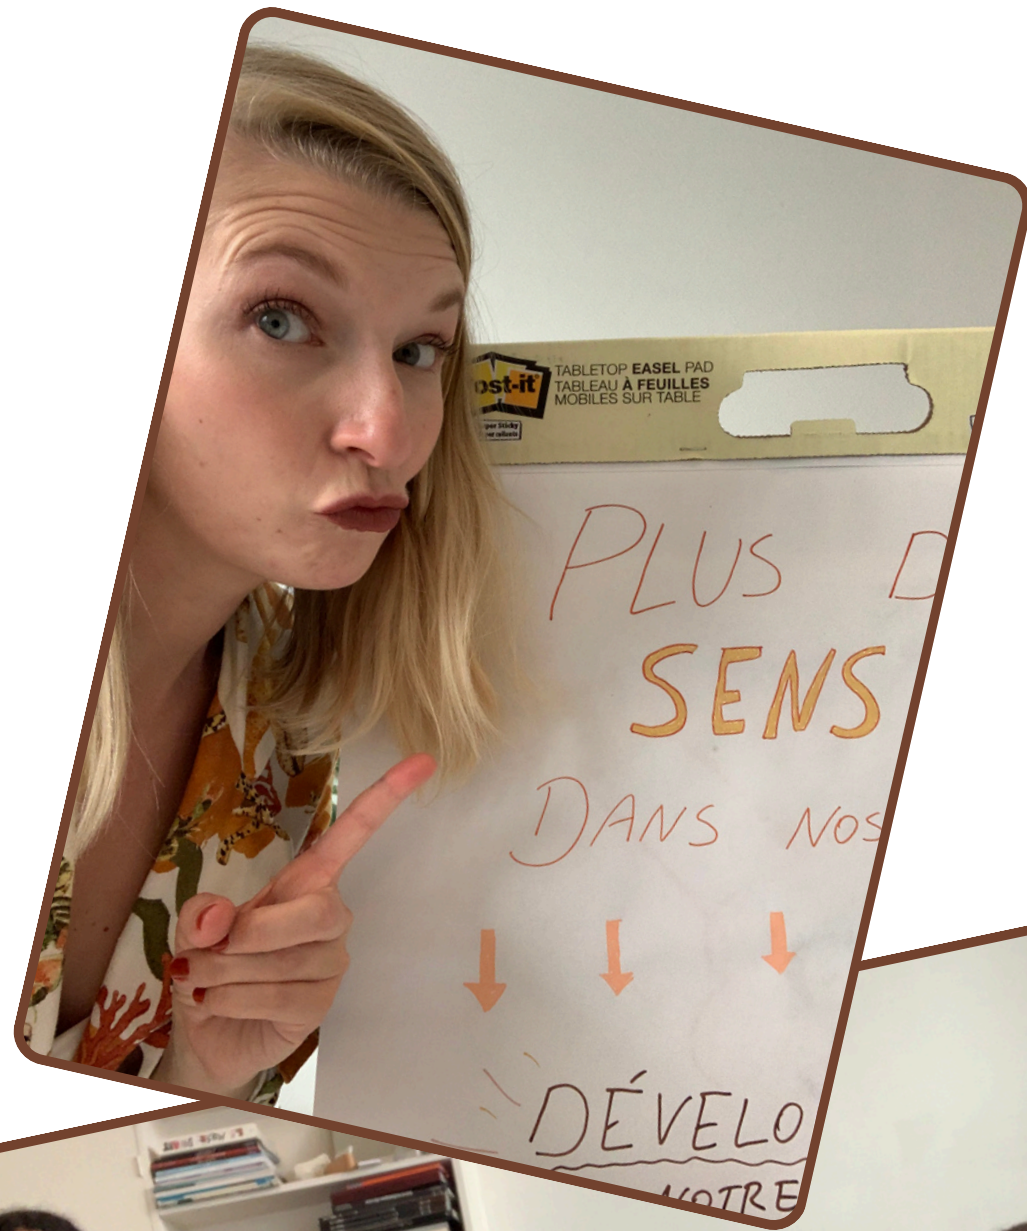 ost-it
TABLETOP EASEL PAD
TABLEAU À FEUILLES
MOBILES SUR TABLE
PLUS D
SENS
DANS NOS
DÉVELO
NOTRE